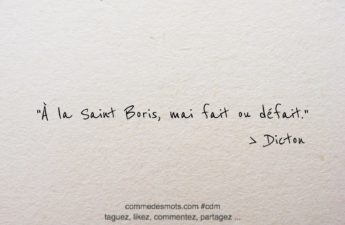 "À la Saint Boris, mai fait ou défait."
> Dicton
commedesmots.com #cdm
taguez, likez, commentez, partagez ...